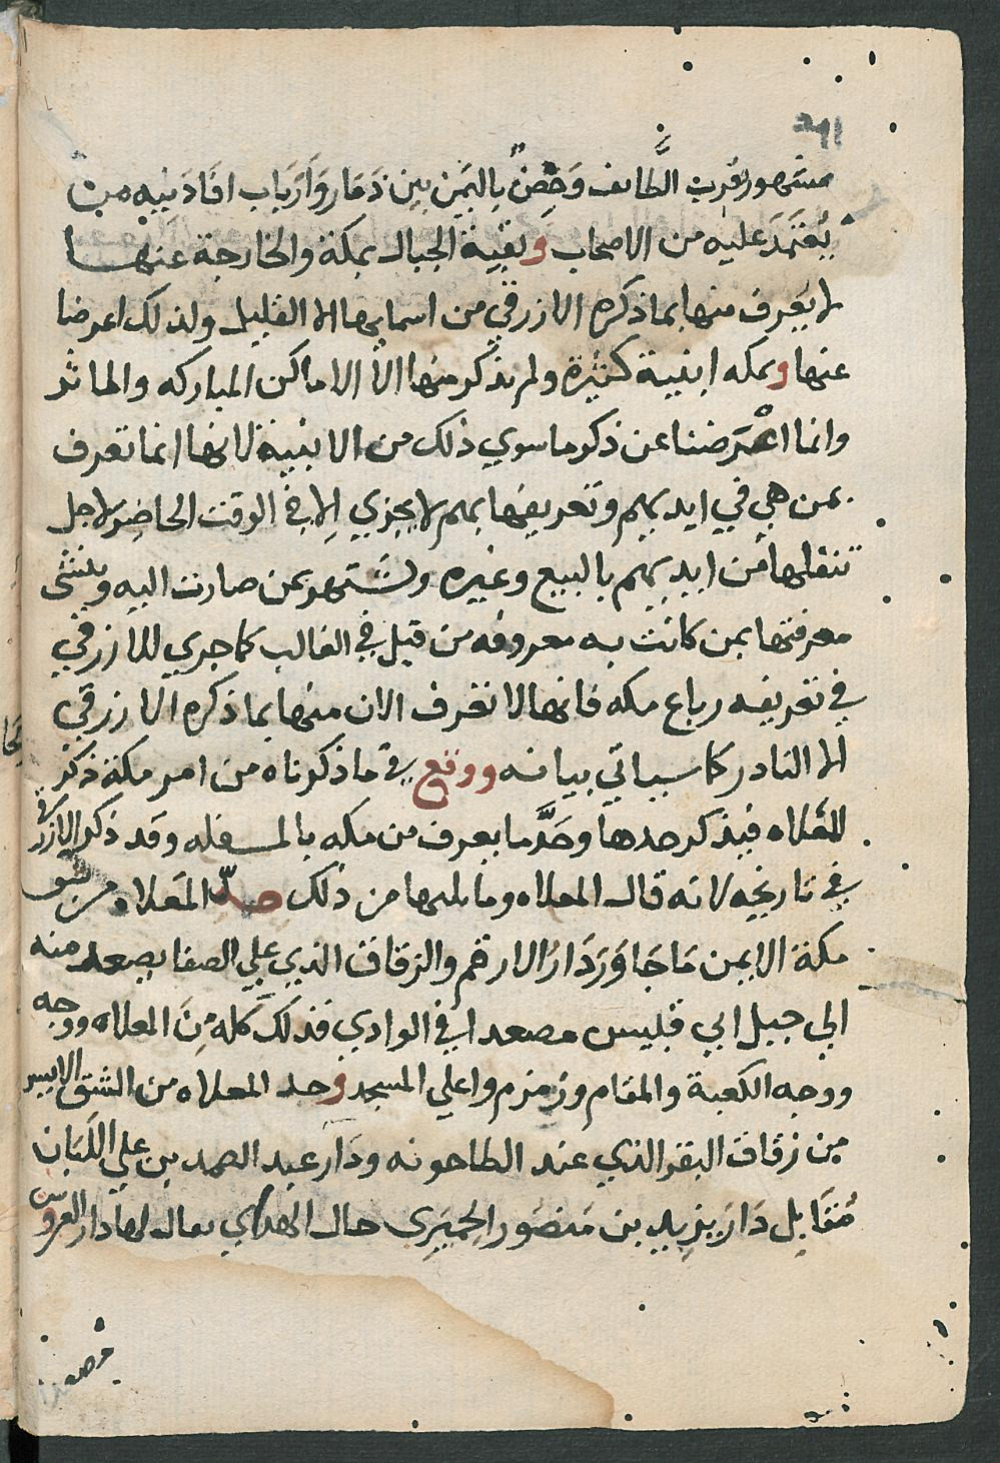 مشهور بقرب الطَّائف وَحَضَنٌ بِاليَمَن بين ذَمَار وَأَرْبَاب افَادَنِيه من
يُعْتَمَدَ عليه من الاصحاب وبقية الجبال بمكة والخارجة عنها
لا يعرف منها بما ذكره الازرقي من اسمايها الا القليل ولذلك اعرضنا
عنها وبمكه ابنية كثيرة ولم يذكر منها الا الاماكن المباركه والماثر
وانما اعْرَضنا عن ذكر ما سوي ذلك من الابنية لانها انما تعرف
بمن هي في ايديهم وتعريفها بهم لا يجزي الا في الوقت الحاضر لاجل
تنقلها من ايديهم بالبيع وغيره وتشتهر بمن صارت اليه وينسى
معرفتها بمن كانت به معروفه من قبل في الغالب كما جري للازرقي
في تعريفه رباع مكه فانها لا تعرف الان منها بما ذكره الازرقي
الا النادر كما سياتي بيانه ووقع في ما ذكرناه من امر مكة ذكر
للمَعْلاه فيذكر حدها وحَدَّ ما يعرف من مكه بالمسفله وقد ذكر الازرقي
في تاريخه لانه قال المعلاه وما يليها من ذلك حدّ المَعلاه من شق
مكة الايمن مَا جَاوَرَ دَارَ الارقم والزقاق الذي علي الصفا يصعد منه
الي جبل ابي قبيس مصعدا في الوادي فذلك كله مِنَ المعلاه ووجه
ووجه الكعبة والمقام وزمزم واعلي المسجد وحد المعلاه من الشق الايسر
من زقاق البقر الذي عند الطاحونه ودَار عبد الصمد بن علي اللتان
مُقَابِل دَارَ يزيد بن مَنصُور الحِمْيَرِي خال المهدي يقال لها دار العروس